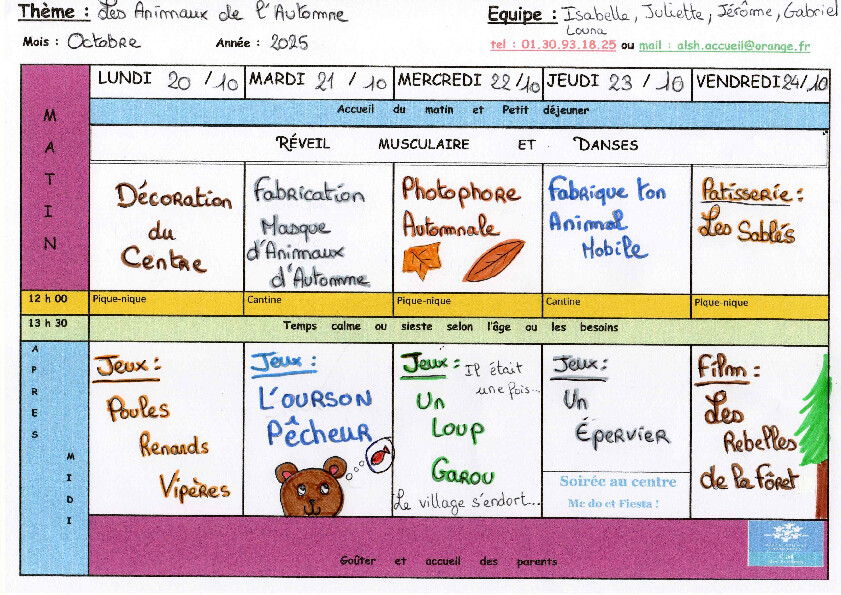 Thème : Les Animaux de l'Automne
Equipe : Isabelle, Juliette, Jérôme, Gabriel
Louna
Mois : Octobre Année : 2025
tel : 01.30.93.18.25 ou mail : alsh.accueil@orange.fr
LUNDI 20 /10 MARDI 21 / 10 MERCREDI 22/10 JEUDI 23 / 10 VENDREDI 24/10
MATIN
Accueil du matin et Petit déjeuner
RÉVEIL MUSCULAIRE ET DANSES
Décoration
du
Centre
Fabrication
Masque
d'Animaux
d'Automne
Photophore
Automnale
Fabrique ton
Animal
Mobile
Patisserie :
Les Sablés
12 h 00 Pique-nique Cantine Pique-nique Cantine Pique-nique
13 h 30 Temps calme ou sieste selon l'âge ou les besoins
APRES
MIDI
Jeux :
Poules
Renards
Vipères
Jeux :
L'OURSON
Pêcheur
Jeux : Il était
une fois...
Un
Loup
Garou
Le village s'endort...
Jeux :
Un
Épervier
Soirée au centre
Mc do et Fiesta !
Film :
Les
Rebelles
de la Fôret
Goûter et accueil des parents